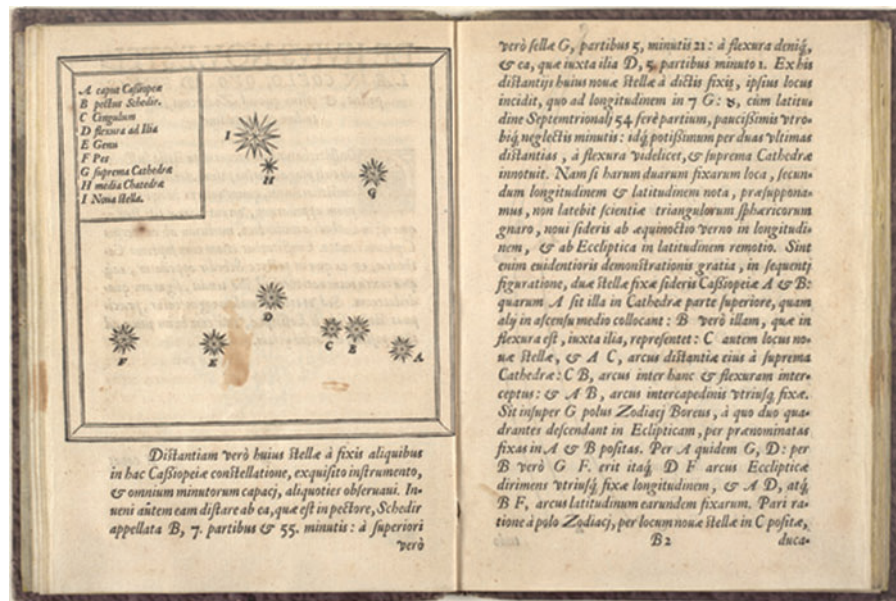 A caput Cassiopeæ
B pectus Schedir.
C Cingulum
D flexura ad Ilia
E Genu
F Pes
G suprema Cathedræ
H media Chatedræ
I Noua stella.
I
H
G
D
F
E
C
B
A
Distantiam verò huius stellæ à fixis aliquibus
in hac Cassiopeiæ constellatione, exquisito instrumento,
& omnium minutorum capacj, aliquoties obseruaui. In-
ueni aũtem eam distare ab ea, quæ est in pectore, Schedir
appellata B, 7. partibus & 55. minutis : à superiori
verò
verò stellæ G, partibus 5, minutis 21 : à flexura deniq́,
& ea, quæ iuxta ilia D, 5 partibus minuto 1. Ex his
distantijs huius nouæ stellæ à dictis fixis, ipsius locus
incidit, quo ad longitudinem in 7 G: ♉, cùm latitu-
dine Septemtrionalj 54 ferè partium, paucissimis vtro-
biq́ neglectis minutis : idq́ potissimum per duas vltimas
distantias, à flexura videlicet, & suprema Cathedræ
innotuit. Nam si harum duarum fixarum loca, secun-
dum longitudinem & latitudinem nota, præsuppona-
mus, non latebit scientiæ triangulorum sphæricorum
gnaro, noui sideris ab æquinoctio verno in longitudi-
nem, & ab Eccliptica in latitudinem remotio. Sint
enim euidentioris demonstrationis gratia, in sequentj
figuratione, duæ stellæ fixæ sideris Cassiopeiæ A & B:
quarum A sit illa in Cathedræ parte superiore, quam
alij in ascensu medio collocant : B verò illam, quæ in
flexura est, iuxta ilia, represẽtet : C autem locus no-
uæ stellæ, & A C, arcus distantiæ eius à suprema
Cathedræ : C B, arcus inter hanc & flexuram inter-
ceptus : & A B, arcus intercapedinis vtriusq́ fixæ.
Sit insuper G polus Zodiacj Boreus, à quo duo qua-
drantes descendant in Eclipticam, per prænominatas
fixas in A & B positas. Per A quidem G, D: per
B verò G F. erit itaq́ D F arcus Ecclipticæ
dirimens vtriusq́ fixæ longitudinem, & A D, atq́
B F, arcus latitudinum earundem fixarum. Pari ra-
tione à polo Zodiacj, per locum nouæ stellæ in C positæ,
B2
duca-